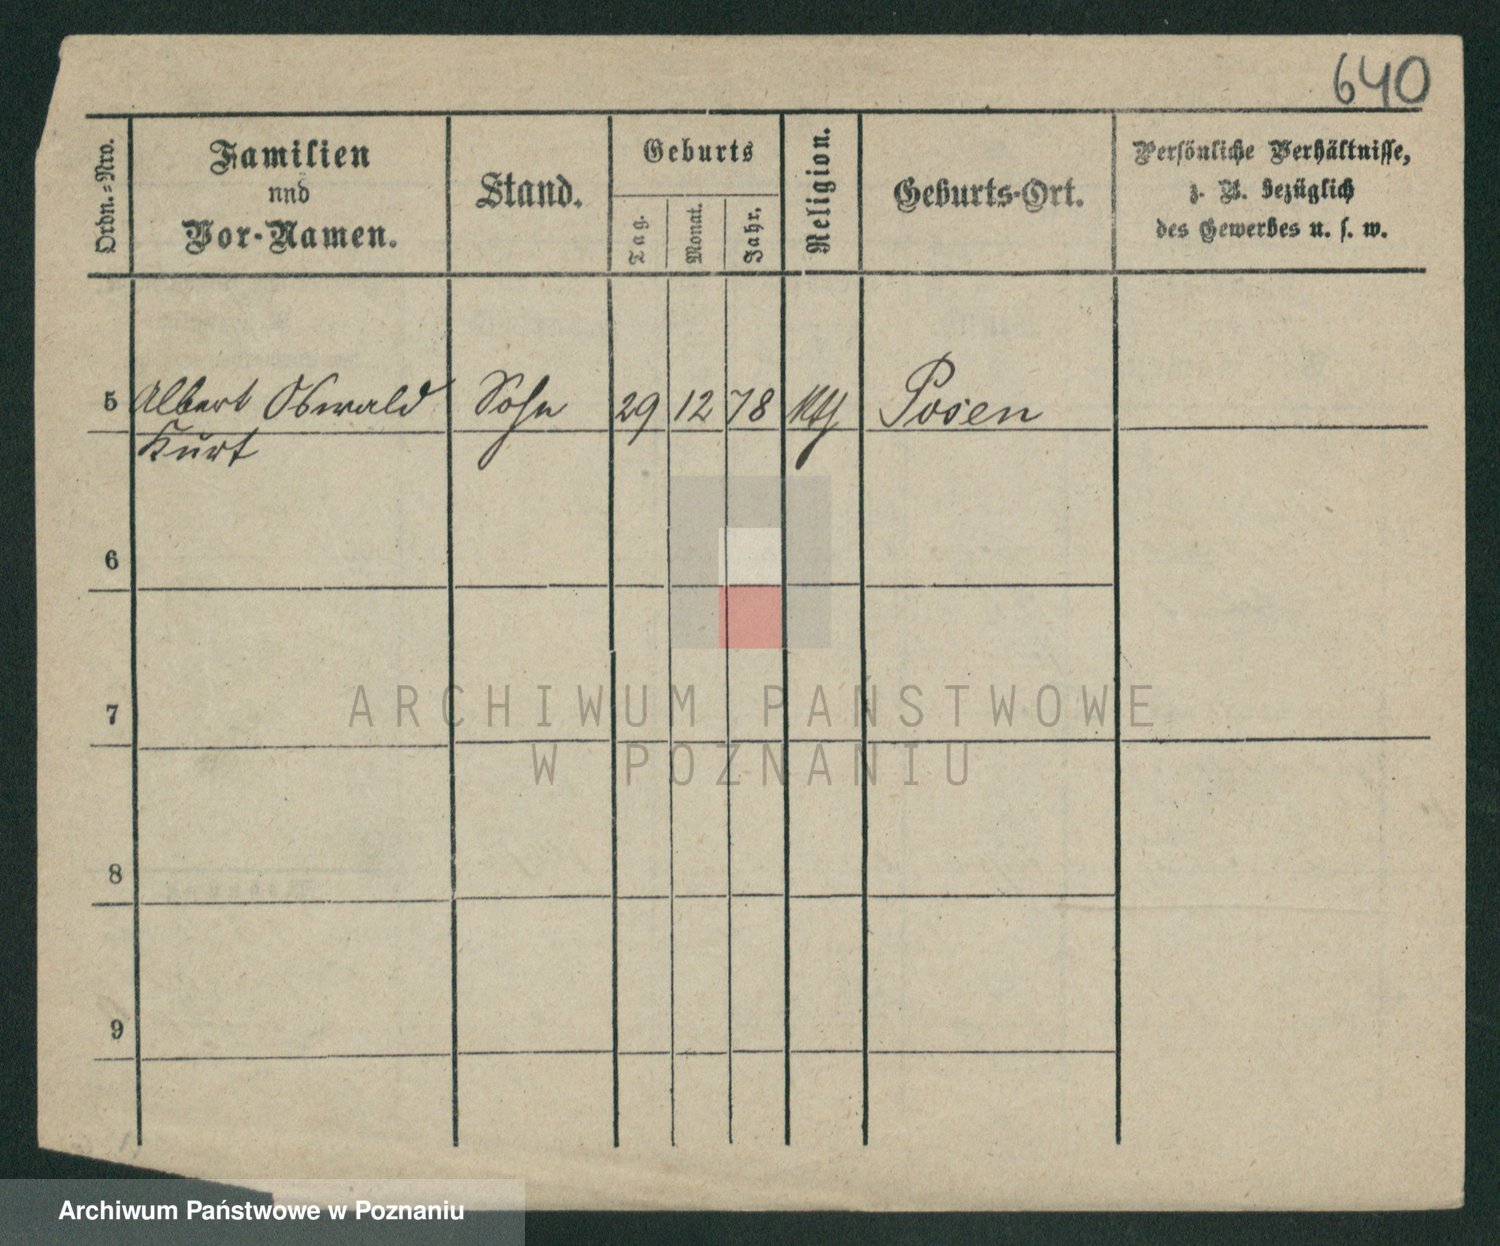 640
Ordn.=Nro.
Familien
und
Vor-Namen.
Stand.
Geburts
Tag.
Monat.
Jahr.
Religion.
Geburts-Ort.
Persönliche Verhältnisse,
z. B. bezüglich
des Gewerbes u. s. w.
5 Albert Oswald Sohn 29 12 78 Posen
Kurt
6
7
8
9
ARCHIWUM PAŃSTWOWE
W POZNANIU
Archiwum Państwowe w Poznaniu